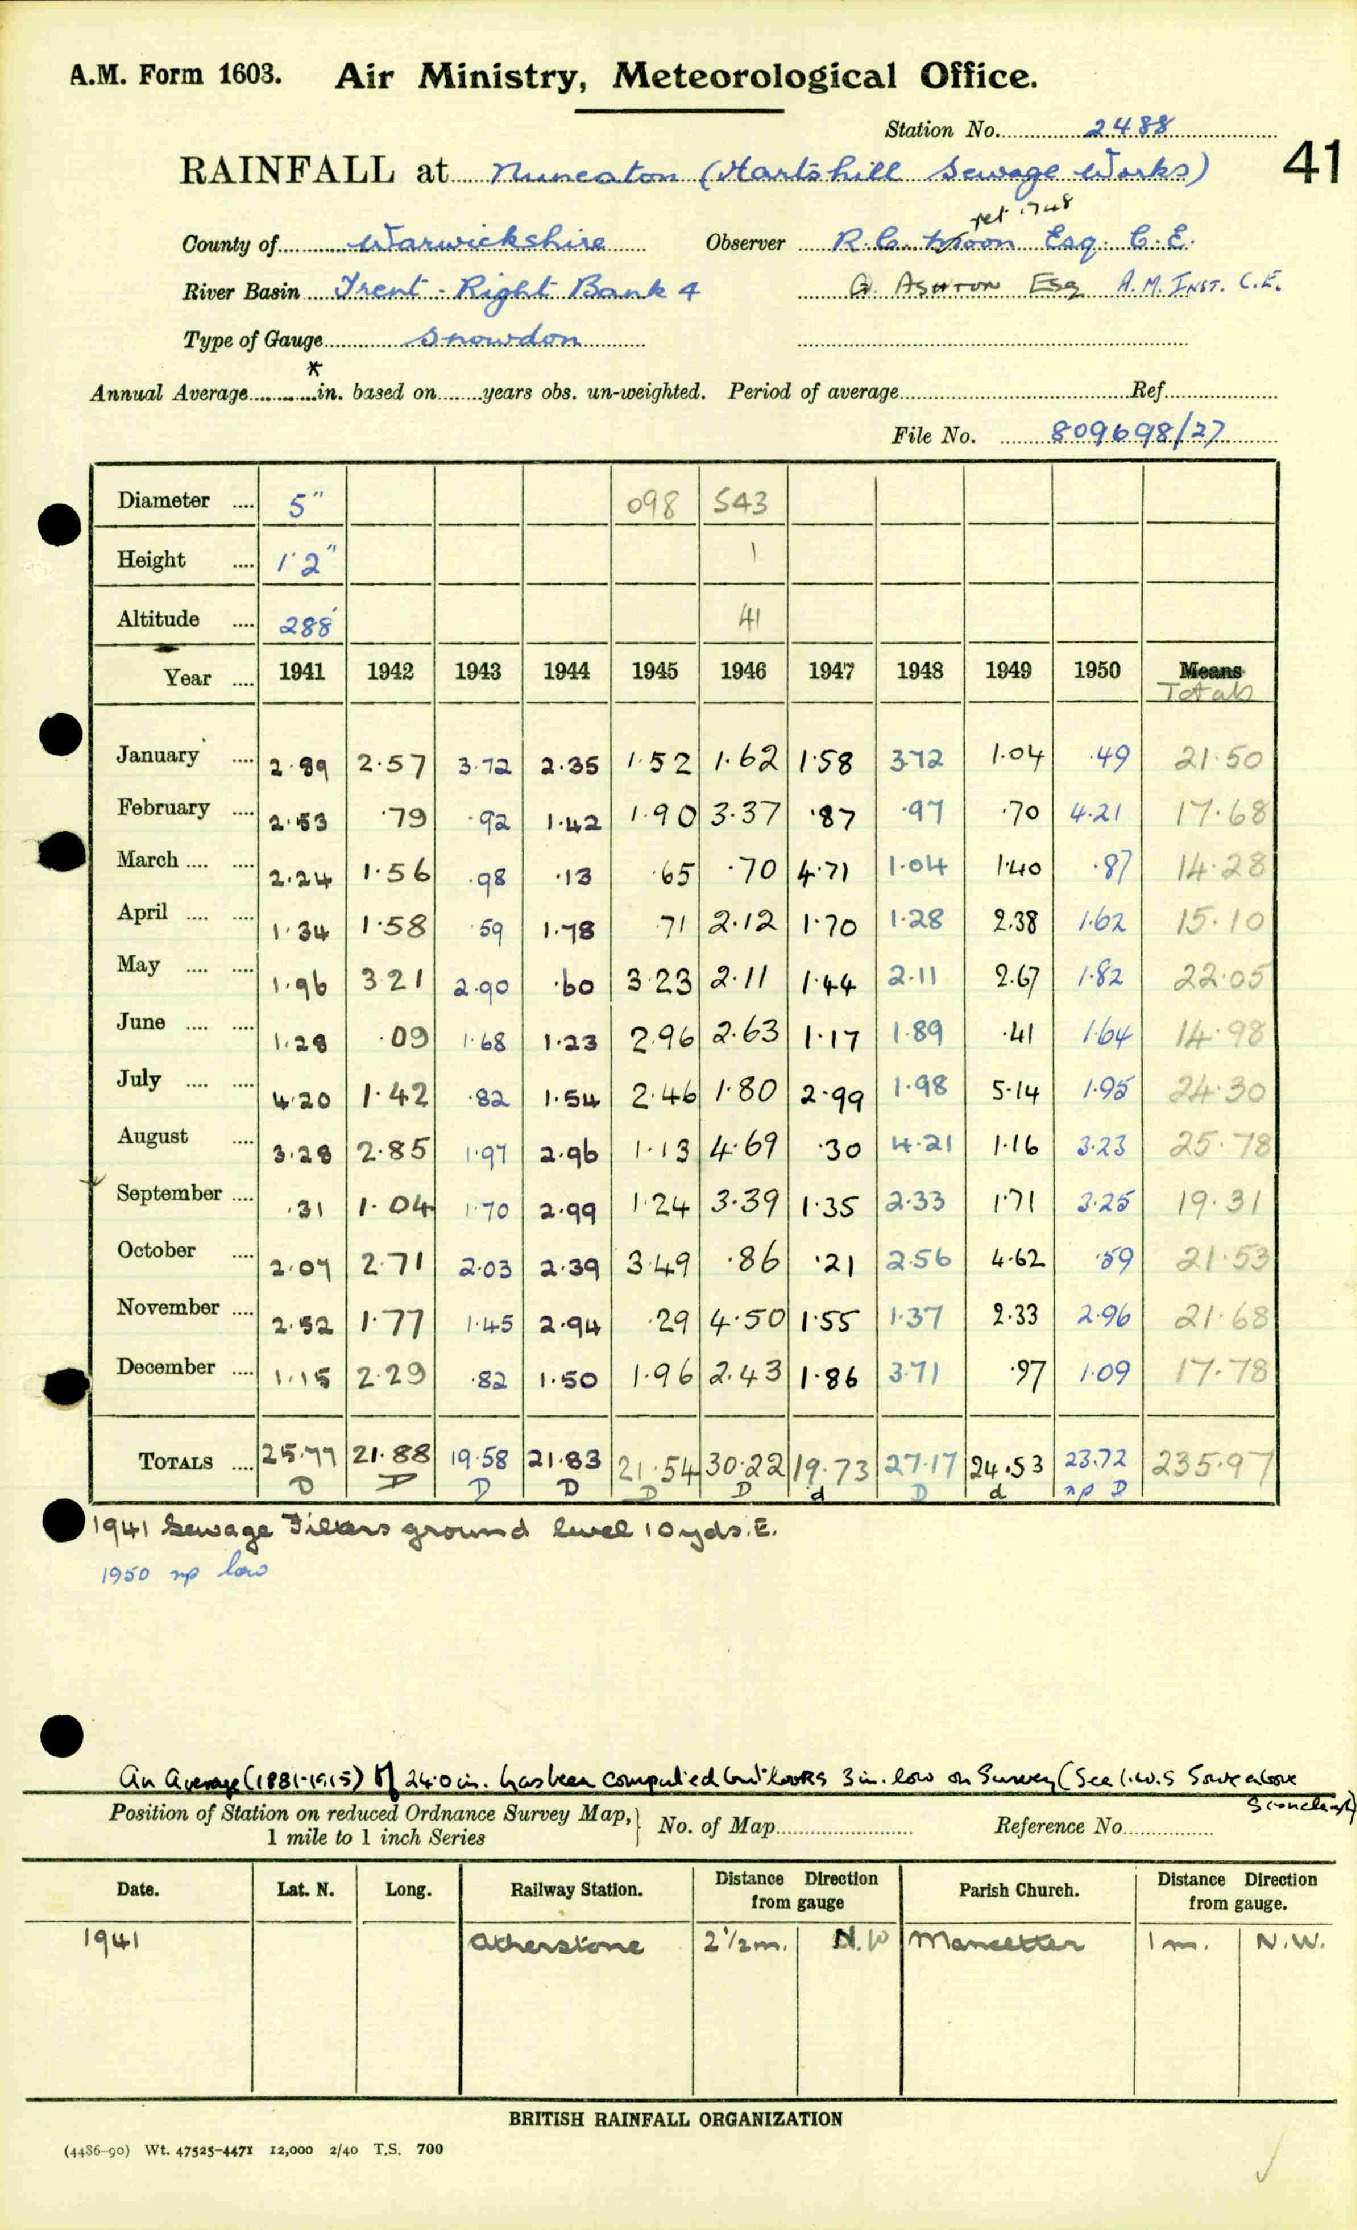 A.M. Form 1603. Air Ministry, Meteorological Office.
Station No. 2488
RAINFALL at Nuneaton (Hartshill Sewage Works) 41
ret. 1948
County of Warwickshire Observer R.C. Moon Esq. C.E.
River Basin Trent - Right Bank 4 G. ASHTON Esq A.M. INST. C.E.
Type of Gauge Snowdon
*
Annual Average in. based on years obs. un-weighted. Period of average Ref.
File No. 809698/27
Diameter 5" 098 543
Height 1'2" 1
Altitude 288' 41
Year 1941 1942 1943 1944 1945 1946 1947 1948 1949 1950 Means
Totals
January 2.89 2.57 3.72 2.35 1.52 1.62 1.58 3.72 1.04 .49 21.50
February 2.53 .79 .92 1.42 1.90 3.37 .87 .97 .70 4.21 17.68
March 2.24 1.56 .98 .13 .65 .70 4.71 1.04 1.40 .87 14.28
April 1.34 1.58 .59 1.78 .71 2.12 1.70 1.28 2.38 1.62 15.10
May 1.96 3.21 2.90 .60 3.23 2.11 1.44 2.11 2.67 1.82 22.05
June 1.28 .09 1.68 1.23 2.96 2.63 1.17 1.89 .41 1.64 14.98
July 4.20 1.42 .82 1.54 2.46 1.80 2.99 1.98 5.14 1.95 24.30
August 3.28 2.85 1.97 2.96 1.13 4.69 .30 4.21 1.16 3.23 25.78
September .31 1.04 1.70 2.99 1.24 3.39 1.35 2.33 1.71 3.25 19.31
October 2.07 2.71 2.03 2.39 3.49 .86 .21 2.56 4.62 .59 21.53
November 2.52 1.77 1.45 2.94 .29 4.50 1.55 1.37 2.33 2.96 21.68
December 1.15 2.29 .82 1.50 1.96 2.43 1.86 3.71 .97 1.09 17.78
TOTALS 25.77 21.88 19.58 21.83 21.54 30.22 19.73 27.17 24.53 23.72 235.97
D D D D D D d D d np D
1941 Sewage Filters ground level 10yds. E.
1950 np low
An Average (1881-1915) of 24.0 in. has been computed but looks 3 in. low on Survey (See above
Position of Station on reduced Ordnance Survey Map, } No. of Map Reference No.
1 mile to 1 inch Series
Date. Lat. N. Long. Railway Station. Distance Direction from gauge Parish Church. Distance Direction from gauge.
1941 Atherstone 2½m. N.W Mancetter 1m. N.W.
BRITISH RAINFALL ORGANIZATION
(4486-90) Wt. 47525-4471 12,000 2/40 T.S. 700